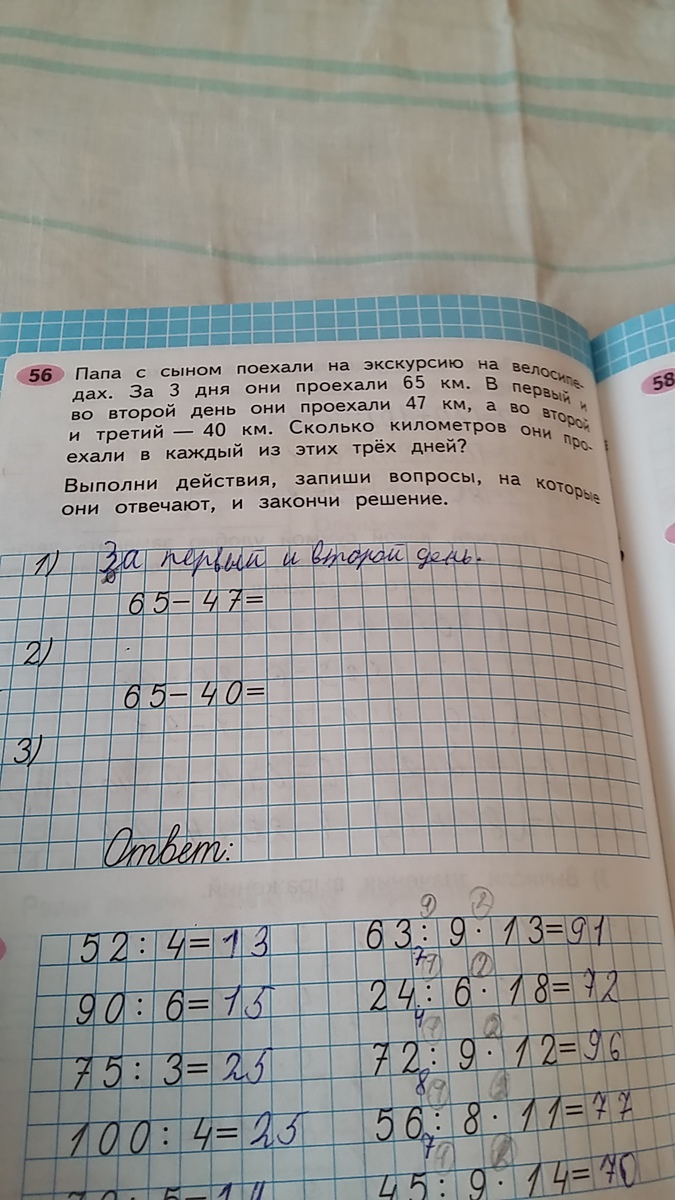 56 Папа с сыном поехали на экскурсию на велосипе-
дах. За 3 дня они проехали 65 км. В первый и
во второй день они проехали 47 км, а во второй
и третий — 40 км. Сколько километров они про-
ехали в каждый из этих трёх дней?
Выполни действия, запиши вопросы, на которые
они отвечают, и закончи решение.
58
1) За первый и второй день.
65−47=
2)
65−40=
3)
Ответ:
52:4=13
63:9·13=91
7
90:6=15
24:6·18=72
4
75:3=25
72:9·12=96
8
100:4=25
56:8·11=77
7
45:9·14=70